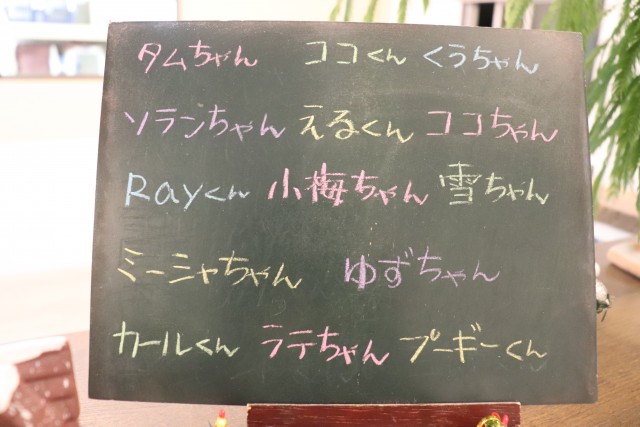 タムちゃん ココくん くうちゃん
ソランちゃん えるくん ココちゃん
Rayくん 小梅ちゃん 雪ちゃん
ミーシャちゃん ゆずちゃん
カールくん ラテちゃん プーギーくん